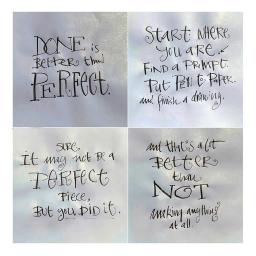 DONE is
Better than
PERFECT.
Start where
you are.
FIND A PROMPT.
Put Pen to Paper.
and finish a drawing.
SURE,
It may not be a
PERFECT
Piece,
But you DID it.
and that's a lot
BETTER
than
NOT
making anything
at all.